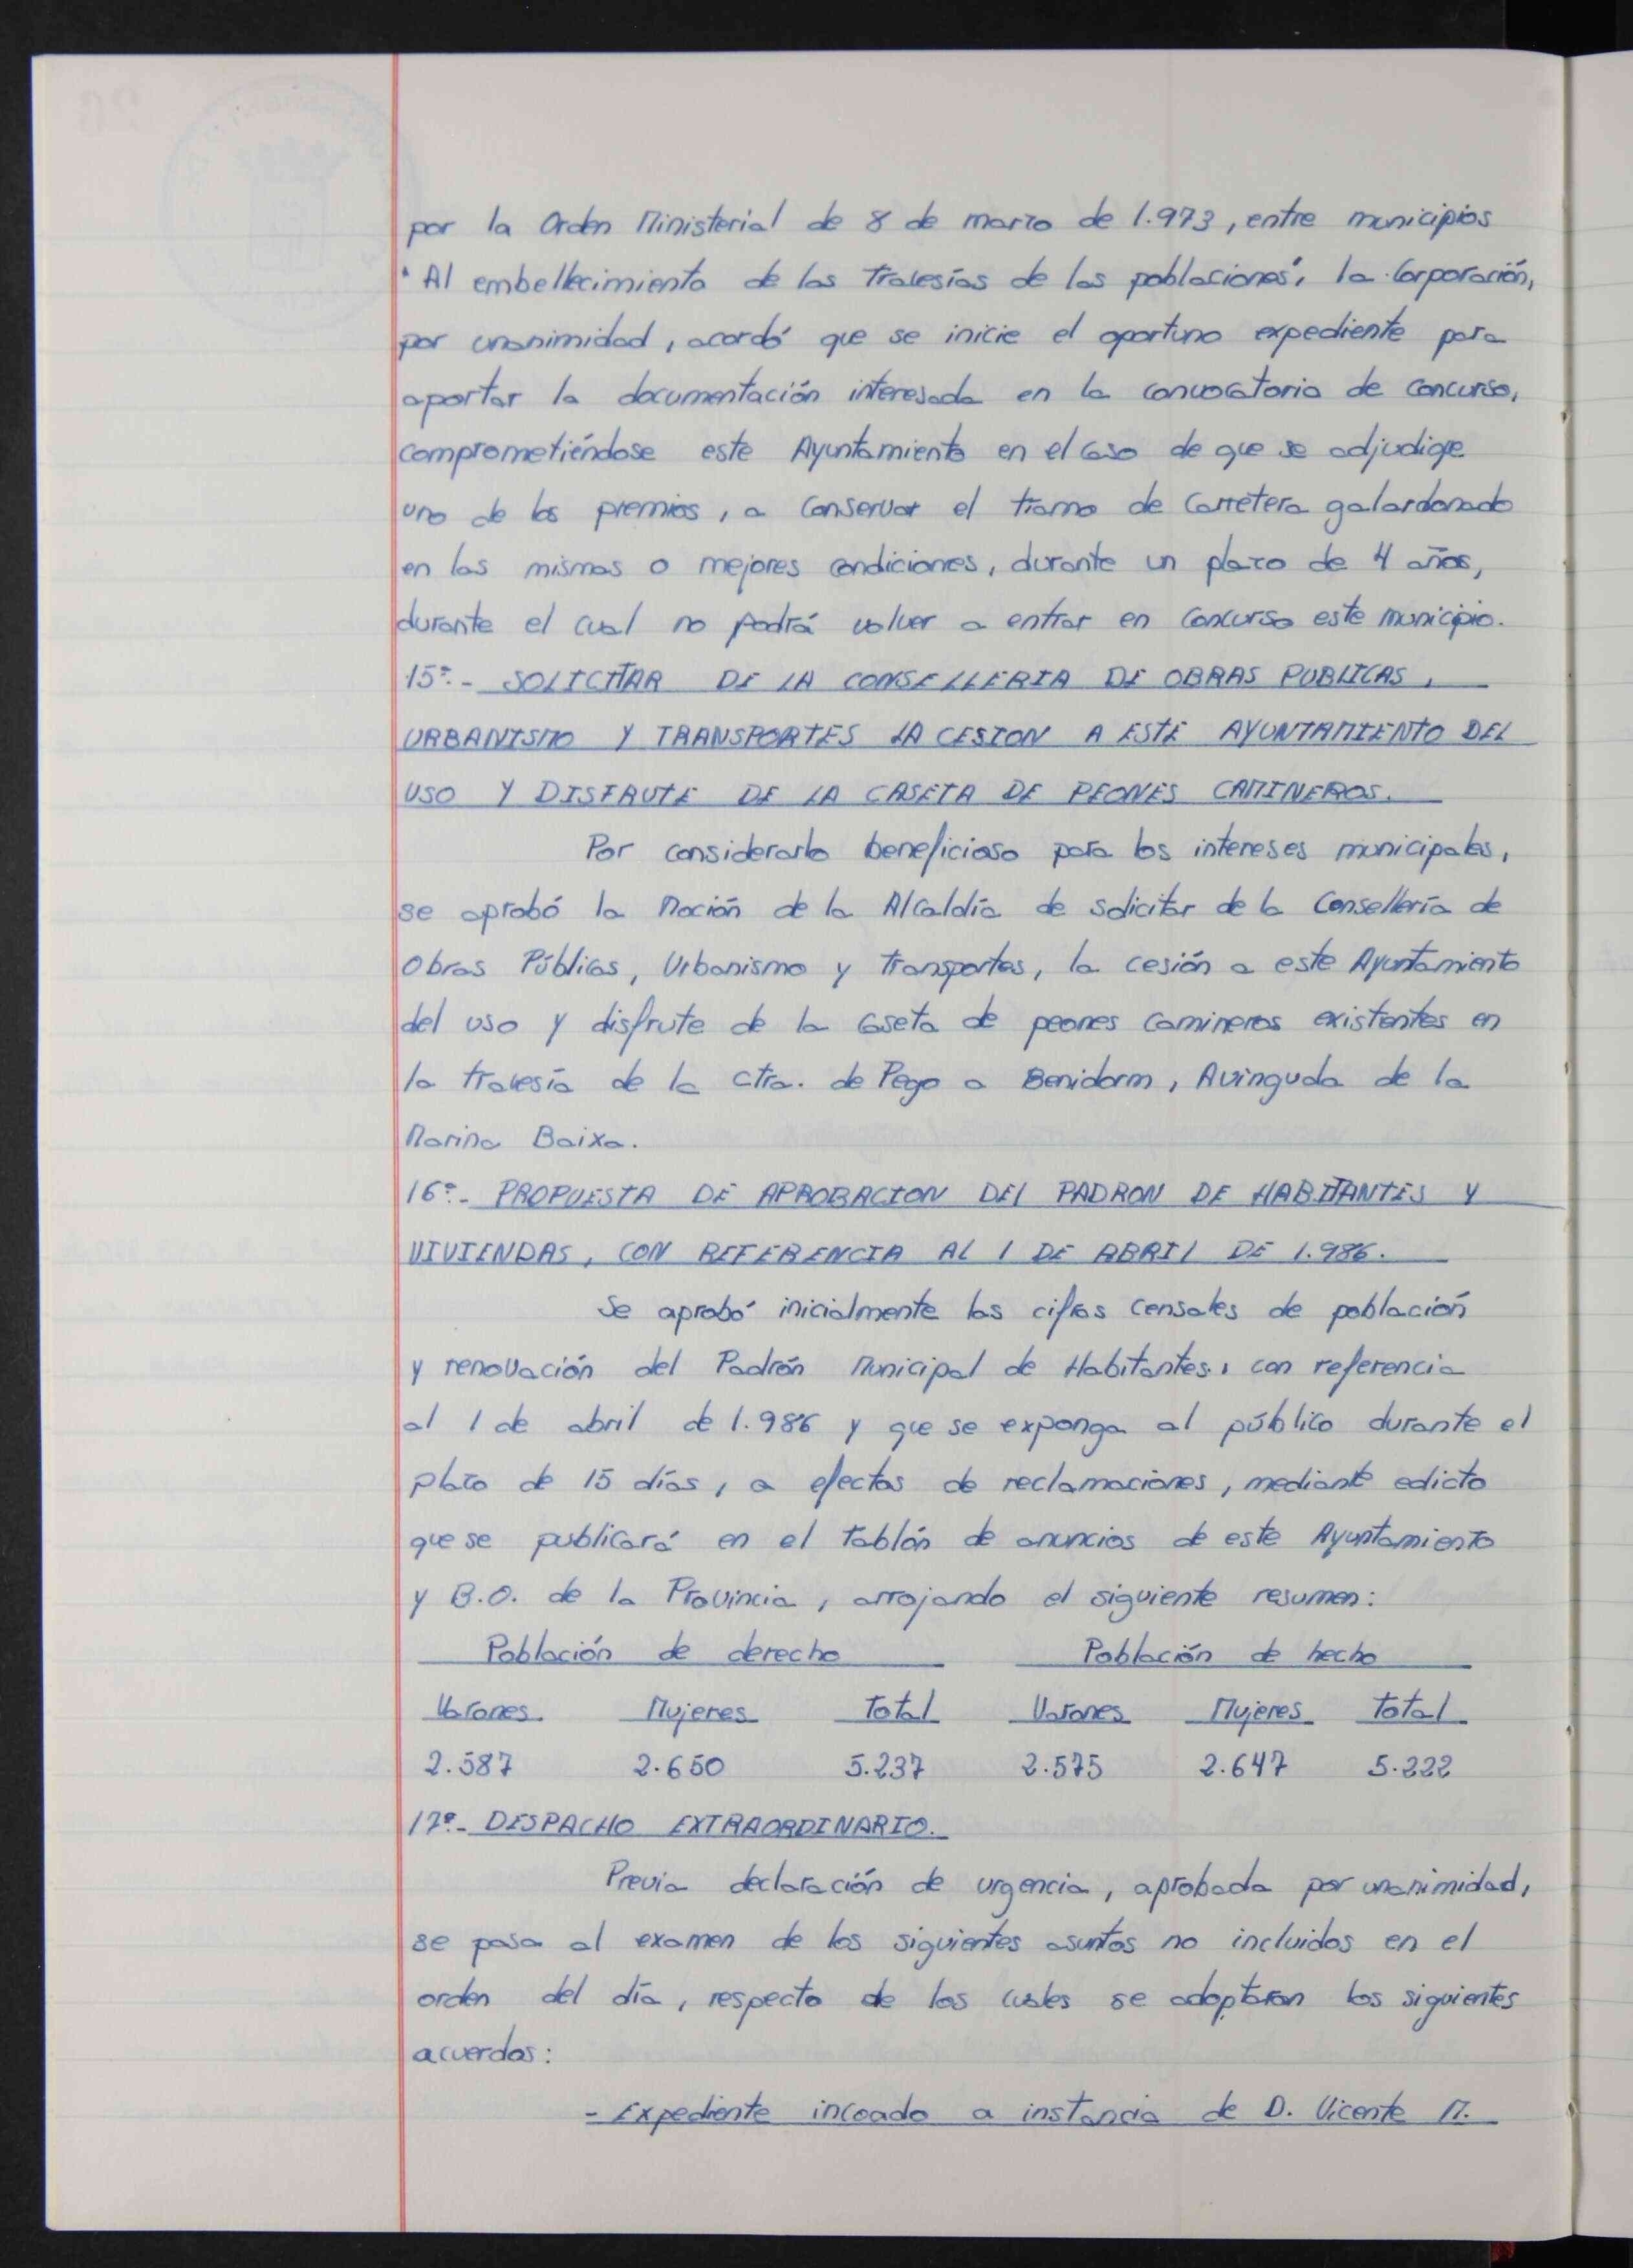 por la Orden Ministerial de 8 de marzo de 1.973, entre municipios
"Al embellecimiento de las travesías de las poblaciones", la Corporación,
por unanimidad, acordó que se inicie el oportuno expediente para
aportar la documentación interesada en la convocatoria de concurso,
comprometiéndose este Ayuntamiento en el caso de que se adjudique
uno de los premios, a conservar el tramo de carretera galardonado
en las mismas o mejores condiciones, durante un plazo de 4 años,
durante el cual no podrá volver a entrar en concurso este municipio.
15º.- SOLICITAR DE LA CONSELLERIA DE OBRAS PUBLICAS,
URBANISMO Y TRANSPORTES LA CESION A ESTE AYUNTAMIENTO DEL
USO Y DISFRUTE DE LA CASETA DE PEONES CAMINEROS.
Por considerarlo beneficioso para los intereses municipales,
se aprobó la Moción de la Alcaldía de solicitar de la Consellería de
Obras Públicas, Urbanismo y Transportes, la cesión a este Ayuntamiento
del uso y disfrute de la caseta de peones camineros existentes en
la travesía de la ctra. de Pego a Benidorm, Avinguda de la
Marina Baixa.
16º.- PROPUESTA DE APROBACION DEL PADRON DE HABITANTES Y
VIVIENDAS, CON REFERENCIA AL 1 DE ABRIL DE 1.986.
Se aprobó inicialmente las cifras censales de población
y renovación del Padrón Municipal de Habitantes, con referencia
al 1 de abril de 1.986 y que se exponga al público durante el
plazo de 15 días, a efectos de reclamaciones, mediante edicto
que se publicará en el tablón de anuncios de este Ayuntamiento
y B.O. de la Provincia, arrojando el siguiente resumen:
Población de derecho Población de hecho
Varones Mujeres Total Varones Mujeres Total
2.587 2.650 5.237 2.575 2.647 5.222
17º.- DESPACHO EXTRAORDINARIO.
Previa declaración de urgencia, aprobada por unanimidad,
se pasa al examen de los siguientes asuntos no incluidos en el
orden del día, respecto de los cuales se adoptaron los siguientes
acuerdos:
- Expediente incoado a instancia de D. Vicente M.